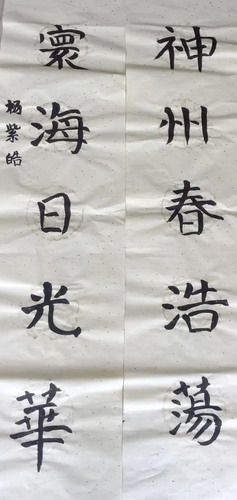 神州春浩蕩
寰海日光華
杨紫皓